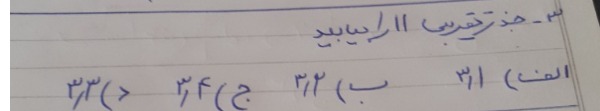 ۳- جذر تقریبی ۱۱ را بیابید
الف) ۳٫۱ ب) ۳٫۲ ج) ۳٫۴ د) ۳٫۳